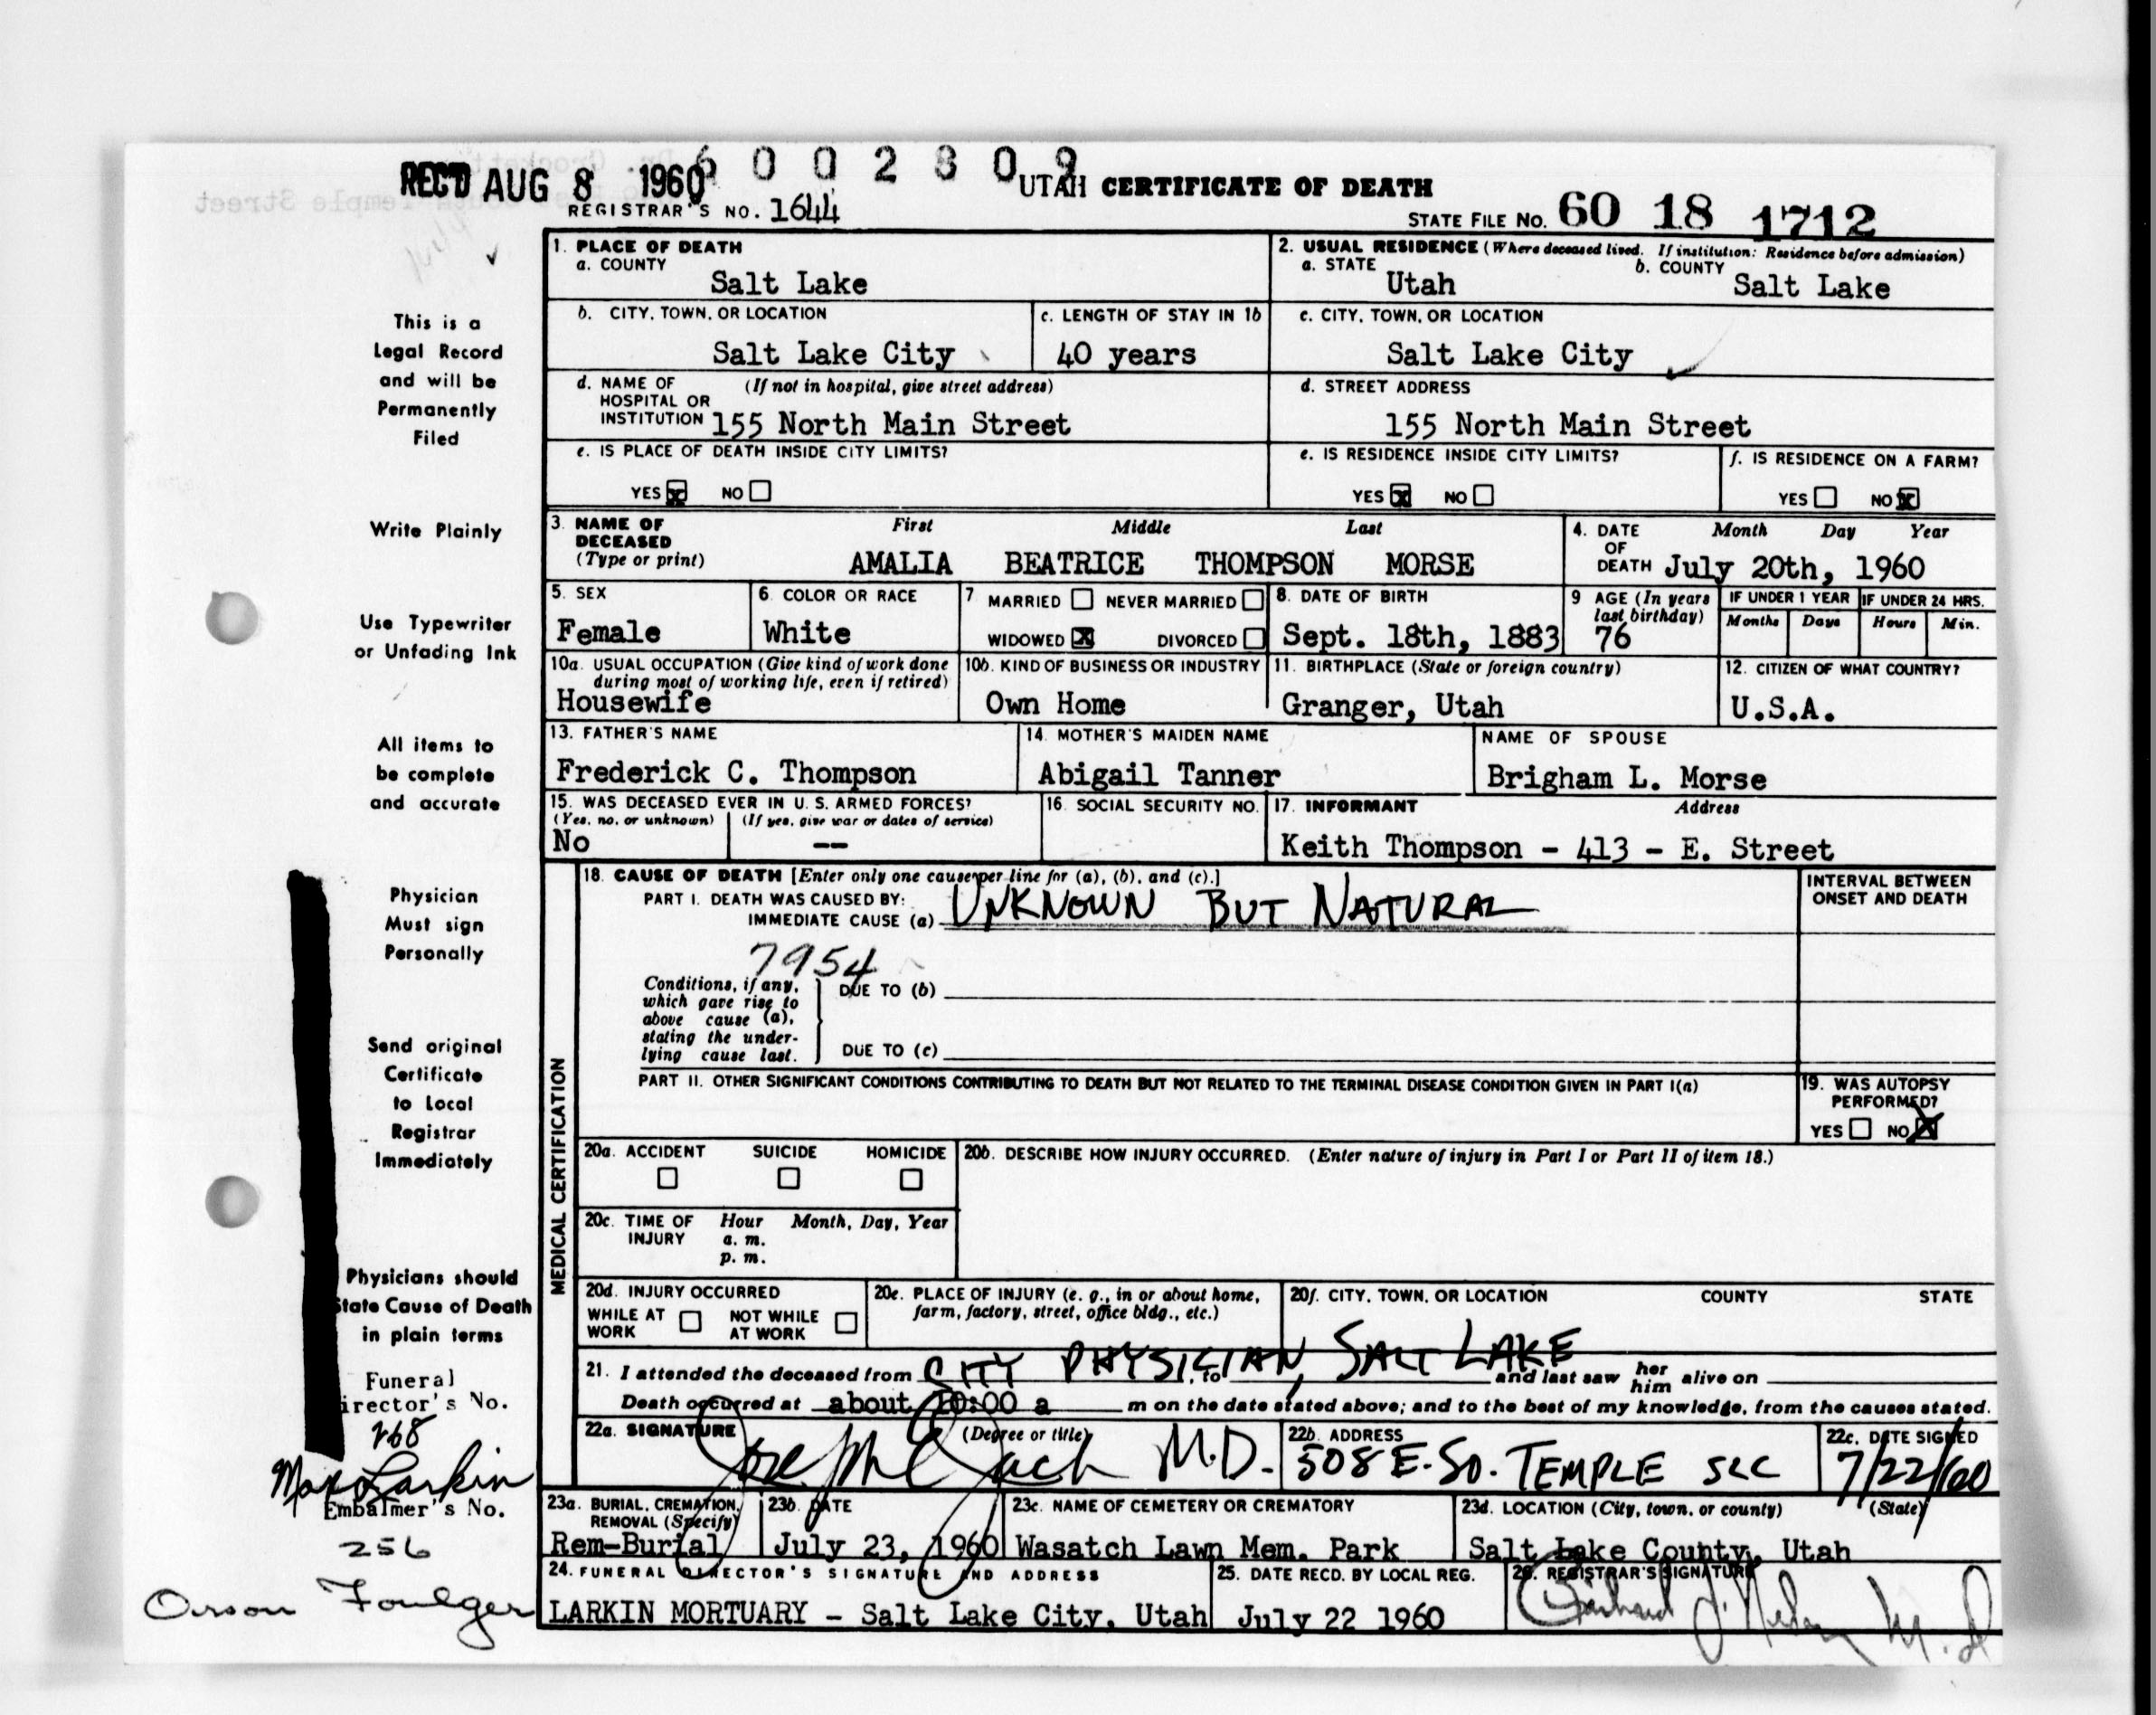 REC'D AUG 8 1960
6002809
UTAH CERTIFICATE OF DEATH
REGISTRAR'S NO. 1644
STATE FILE NO. 60 18 1712
1. PLACE OF DEATH
a. COUNTY
Salt Lake
2. USUAL RESIDENCE (Where deceased lived. If institution: Residence before admission)
a. STATE
Utah
b. COUNTY
Salt Lake
b. CITY, TOWN, OR LOCATION
Salt Lake City
c. LENGTH OF STAY IN 1b
40 years
c. CITY, TOWN, OR LOCATION
Salt Lake City
d. NAME OF (If not in hospital, give street address)
HOSPITAL OR
INSTITUTION 155 North Main Street
d. STREET ADDRESS
155 North Main Street
e. IS PLACE OF DEATH INSIDE CITY LIMITS?
YES X NO
e. IS RESIDENCE INSIDE CITY LIMITS?
YES X NO
f. IS RESIDENCE ON A FARM?
YES NO X
3. NAME OF
DECEASED
(Type or print)
First Middle Last
AMALIA BEATRICE THOMPSON MORSE
4. DATE Month Day Year
OF
DEATH July 20th, 1960
5. SEX
Female
6. COLOR OR RACE
White
7 MARRIED NEVER MARRIED
WIDOWED X DIVORCED
8. DATE OF BIRTH
Sept. 18th, 1883
9 AGE (In years
last birthday)
76
IF UNDER 1 YEAR IF UNDER 24 HRS.
Months Days Hours Min.
10a. USUAL OCCUPATION (Give kind of work done
during most of working life, even if retired)
Housewife
10b. KIND OF BUSINESS OR INDUSTRY
Own Home
11. BIRTHPLACE (State or foreign country)
Granger, Utah
12. CITIZEN OF WHAT COUNTRY?
U.S.A.
13. FATHER'S NAME
Frederick C. Thompson
14. MOTHER'S MAIDEN NAME
Abigail Tanner
NAME OF SPOUSE
Brigham L. Morse
15. WAS DECEASED EVER IN U.S. ARMED FORCES?
(Yes, no, or unknown) (If yes, give war or dates of service)
No --
16. SOCIAL SECURITY NO.
17. INFORMANT Address
Keith Thompson - 413 - E. Street
18. CAUSE OF DEATH [Enter only one cause per line for (a), (b), and (c).]
PART I. DEATH WAS CAUSED BY:
IMMEDIATE CAUSE (a) UNKNOWN BUT NATURAL
INTERVAL BETWEEN
ONSET AND DEATH
7954
Conditions, if any,
which gave rise to
above cause (a),
stating the under-
lying cause last.
DUE TO (b)
DUE TO (c)
PART II. OTHER SIGNIFICANT CONDITIONS CONTRIBUTING TO DEATH BUT NOT RELATED TO THE TERMINAL DISEASE CONDITION GIVEN IN PART I(a)
19. WAS AUTOPSY
PERFORMED?
YES NO X
MEDICAL CERTIFICATION
20a. ACCIDENT SUICIDE HOMICIDE
20b. DESCRIBE HOW INJURY OCCURRED. (Enter nature of injury in Part I or Part II of item 18.)
20c. TIME OF Hour Month, Day, Year
INJURY a. m.
p. m.
20d. INJURY OCCURRED
WHILE AT NOT WHILE
WORK AT WORK
20e. PLACE OF INJURY (e. g., in or about home,
farm, factory, street, office bldg., etc.)
20f. CITY, TOWN, OR LOCATION COUNTY STATE
21. I attended the deceased from CITY PHYSICIAN, to SALT LAKE and last saw her him alive on
Death occurred at about 10:00 a m on the date stated above; and to the best of my knowledge, from the causes stated.
22a. SIGNATURE (Degree or title)
M.D.
22b. ADDRESS
508 E. SO. TEMPLE SLC
22c. DATE SIGNED
7/22/60
23a. BURIAL, CREMATION,
REMOVAL (Specify)
Rem-Burial
23b. DATE
July 23, 1960
23c. NAME OF CEMETERY OR CREMATORY
Wasatch Lawn Mem. Park
23d. LOCATION (City, town, or county) (State)
Salt Lake County, Utah
24. FUNERAL DIRECTOR'S SIGNATURE AND ADDRESS
LARKIN MORTUARY - Salt Lake City, Utah
25. DATE RECD. BY LOCAL REG.
July 22 1960
26. REGISTRAR'S SIGNATURE
M.D
This is a
Legal Record
and will be
Permanently
Filed
Write Plainly
Use Typewriter
or Unfading Ink
All items to
be complete
and accurate
Physician
Must sign
Personally
Send original
Certificate
to Local
Registrar
Immediately
Physicians should
State Cause of Death
in plain terms
Funeral
irector's No.
268
Max Larkin
Embalmer's No.
256
Orson Foulger